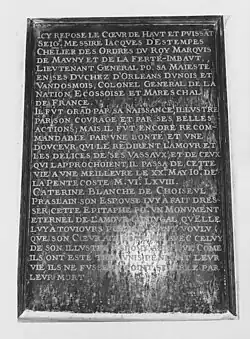 ICY REPOSE LE CŒUR DE HAVT ET PVISSAT
SEIGr MESSIRE IACQVES DESTAMPES
CHELIER DES ORDRES DV ROY MARQVIS
DE MAVNY ET DE LA FERTÉ-IMBAVT
LIEVTENANT GENERAL PO. SA MAIESTE
EN SES DVCHEZ D'ORLEANS DVNOIS ET
VANDOSMOIS, COLONEL GENERAL DE LA
NATION ECOSSOISE ET MARESCHAL
DE FRANCE.
IL FVT GRAD PAR SA NAISSANCE ILLVSTRE
PAR SON COVRAGE ET PAR SES BELLES
ACTIONS, MAIS IL FVT ENCORE RECOM
MANDABLE PAR VNE BONTE ET VNE
DOVCEVR QVI LE RDIRENT L'AMOVR ET
LES DELICES DE SES VASSAVX, ET DE CEVX
QVI L'APPROCHOIENT IL PASSA DE CETTE
VIE A VNE MEILLEVRE LE XX. MAY IO. DE
LA PENTECOSTE M. VI. LXVIII.
CATERINE BLANCHE DE CHOISEVL
PRASLAIN SON ESPOVSE LVY A FAIT DRES
SER CETTE EPITAPHE PO. VN MONVMENT
ETERNEL DE L'AMOVR CONIVGAL QVELLE
LVY A TOVIOVRS VOVLV
QVE SON CŒVR AVEC CELVY
DE SON ILLVSTRE COME
ILS ONT ESTE LEVR
VIE ILS NE FVS PAR
LEVR MORT